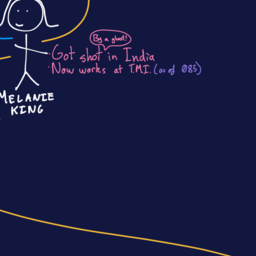 By a ghost!
Got shot in India
Now works at T.M.I. (as of 085)
MELANIE
KING